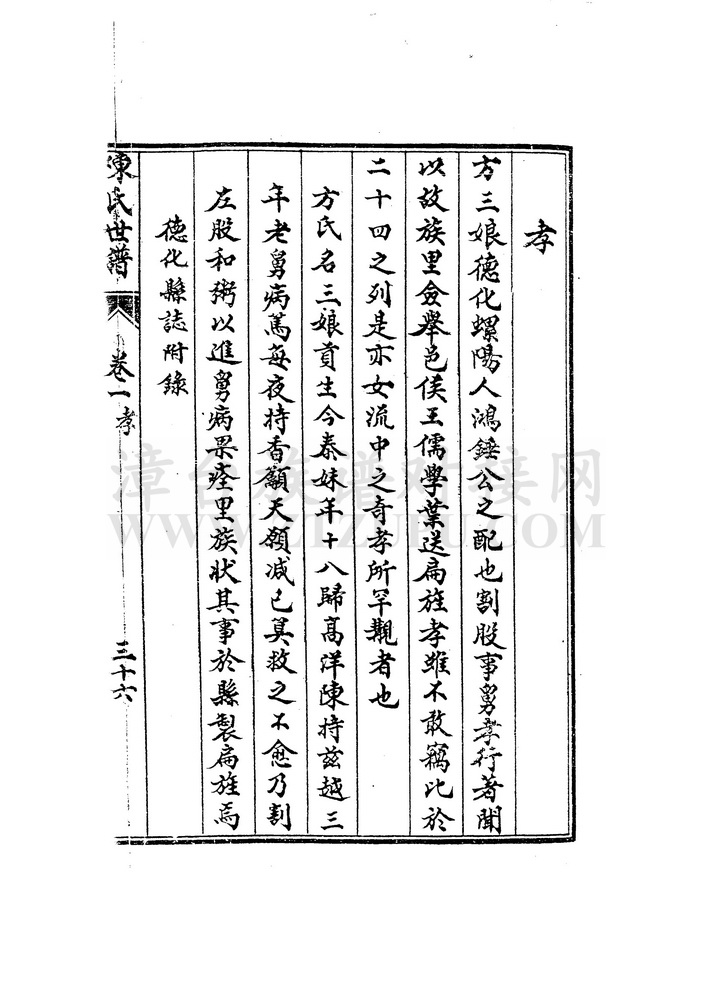 孝
方三娘德化螺陽人鴻錘公之配也割股事舅孝行著聞
以故族里僉舉邑侯王儒學葉送扁旌孝雖不敢竊比於
二十四之列是亦女流中之奇孝所罕覯者也
方氏名三娘貢生今泰妹年十八歸高洋陳持茲越三
年老舅病篤每夜持香籲天願减己筭救之不愈乃割
左股和粥以進舅病果痊里族狀其事於縣製扁旌焉
德化縣誌附錄
陳氏世譜 卷一 孝 三十六
漳台族谱对接网
WWW.ZTZUPU.COM